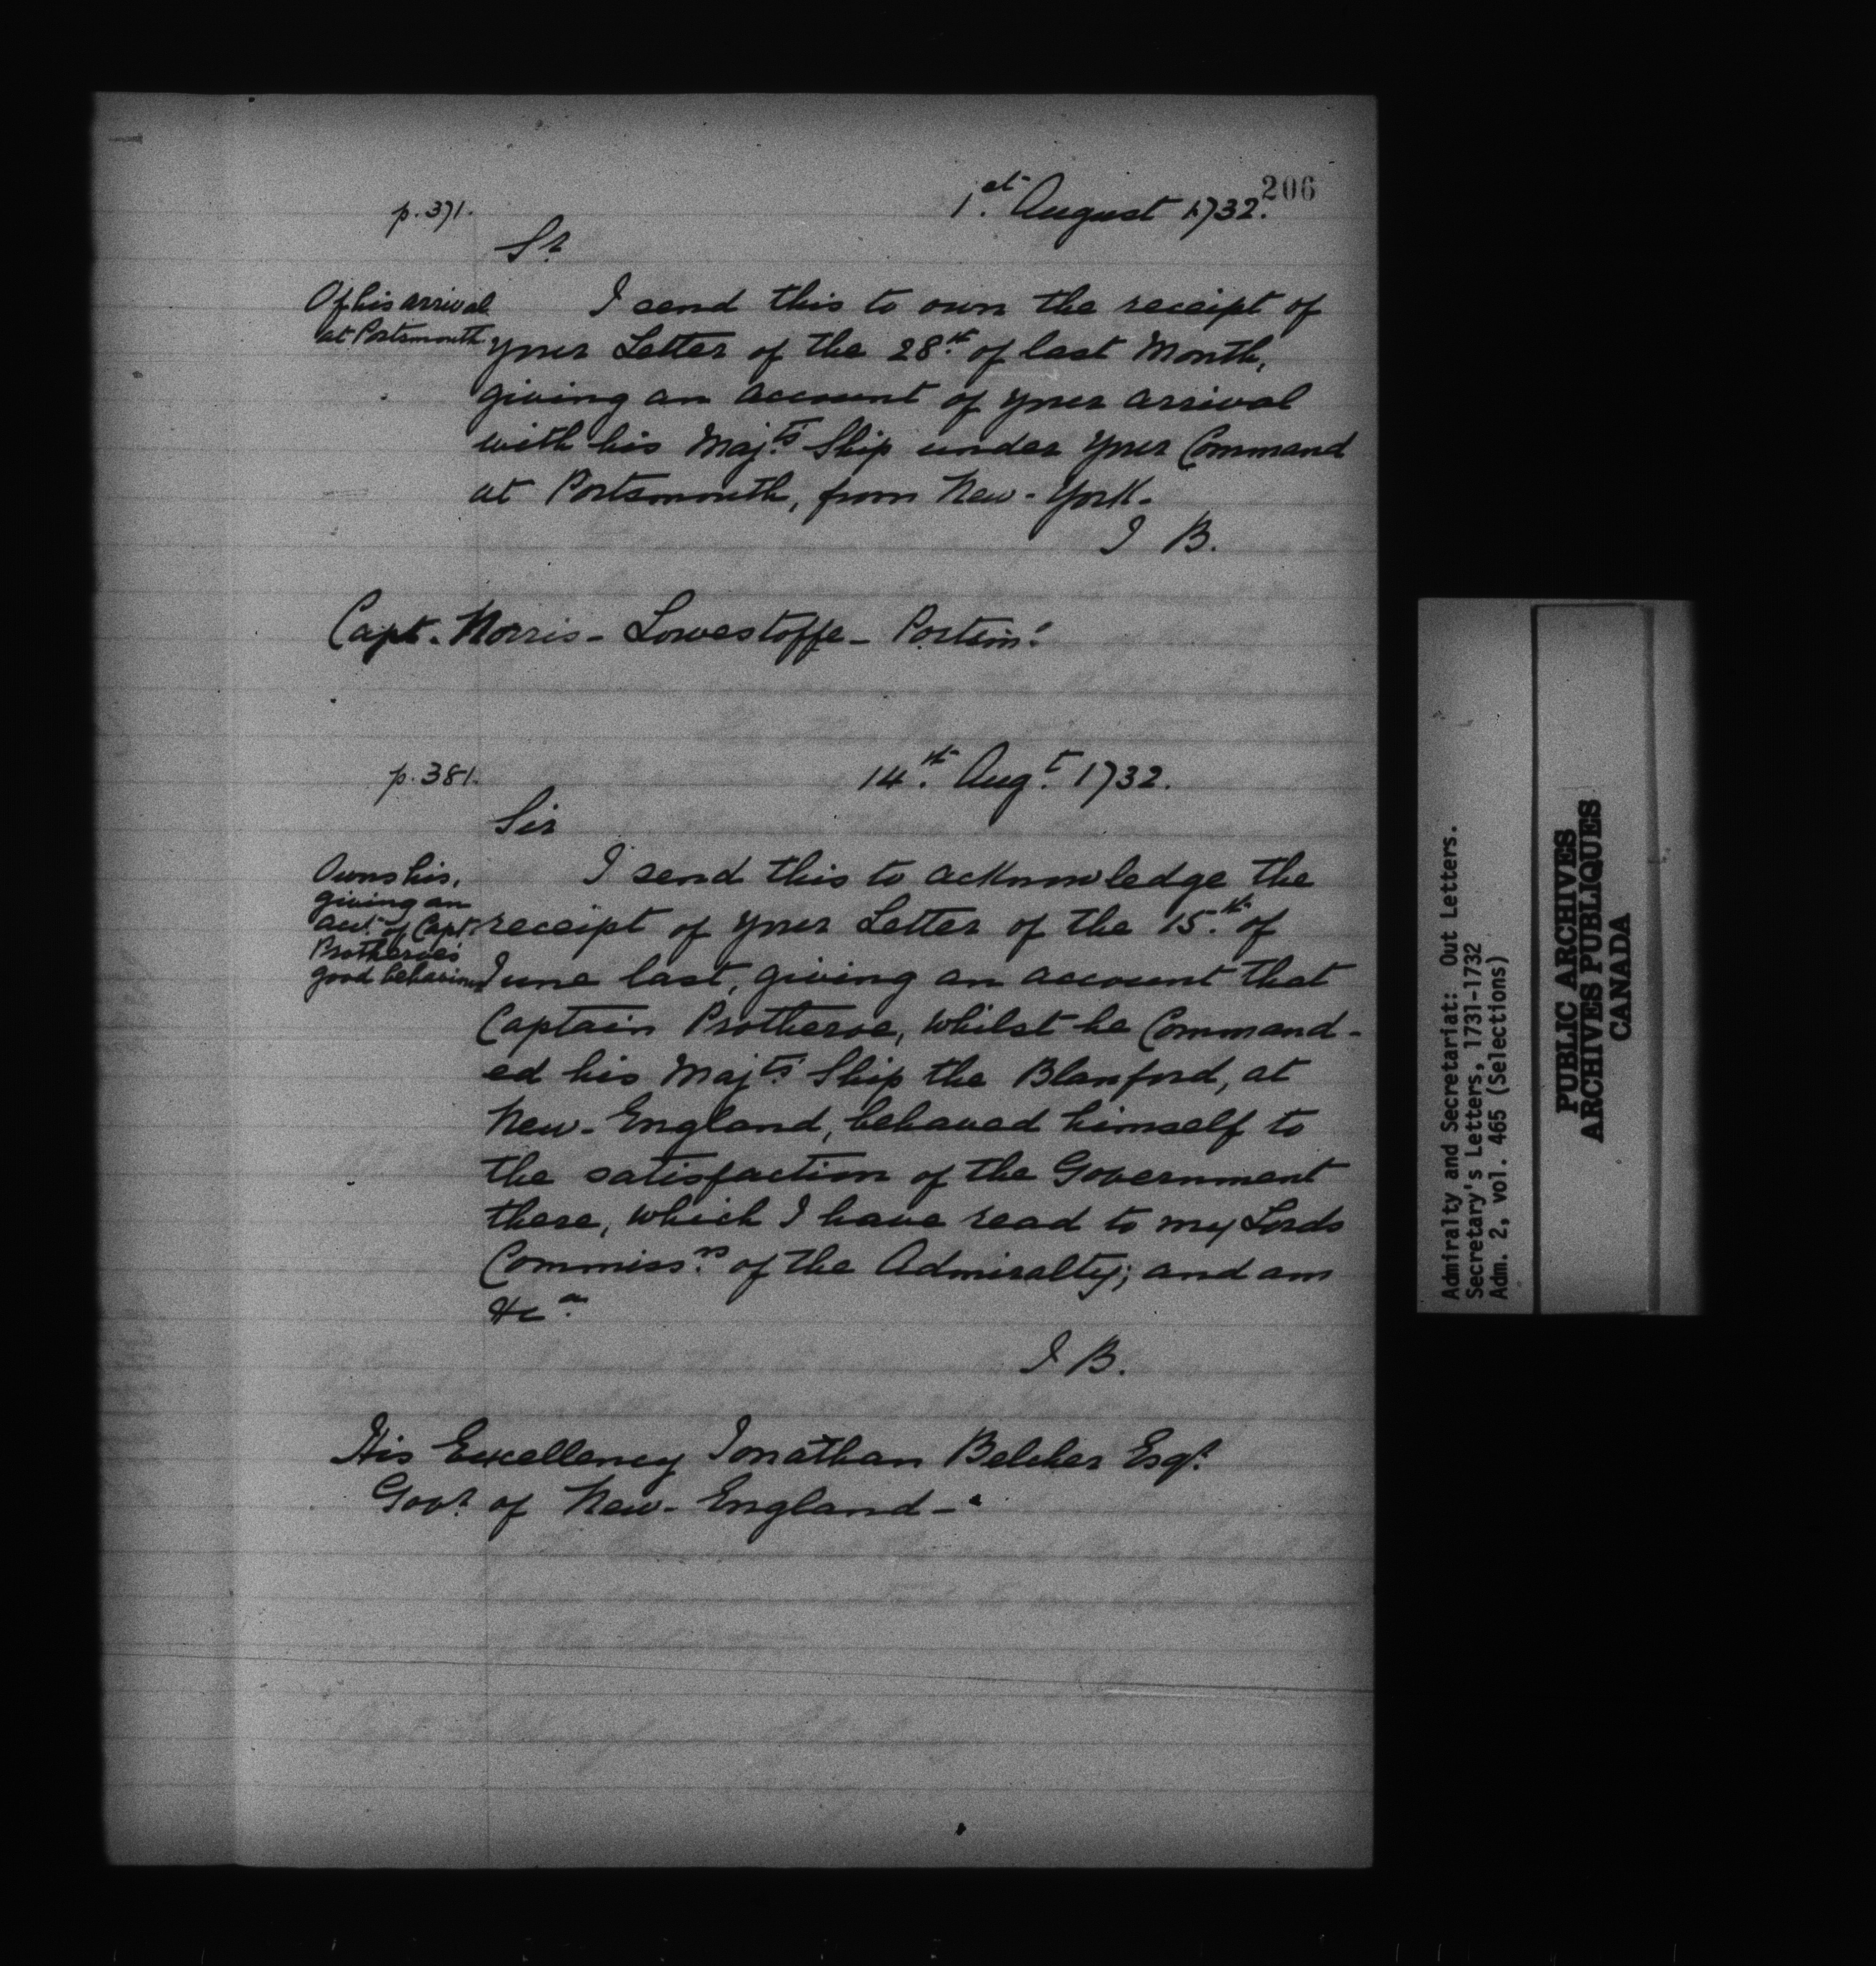 206
p. 371.
1st. August 1732.
Sr.
Of his arrival
at Portsmouth
I send this to own the receipt of
your Letter of the 28th. of last Month,
giving an account of your arrival
with his Majts. Ship under your Command
at Portsmouth, from New-York.
I B.
Capt. Norris - Lowestoffe - Portsmo.
p. 381.
14th. Augt. 1732.
Sir
Owns his,
giving an
acct. of Capt.
Protheroe's
good behaviour
I send this to acknowledge the
receipt of your Letter of the 15th. of
June last, giving an account that
Captain Protheroe, whilst he Command-
ed his Majts. Ship the Blanford, at
New-England, behaved himself to
the satisfaction of the Government
there, which I have read to my Lords
Commissrs. of the Admiralty; and am
&ca.
I B.
His Excellency Jonathan Belcher Esqr.
Govr. of New-England -
Admiralty and Secretariat: Out Letters.
Secretary's Letters, 1731-1732
Adm. 2, vol. 465 (Selections)
PUBLIC ARCHIVES
ARCHIVES PUBLIQUES
CANADA